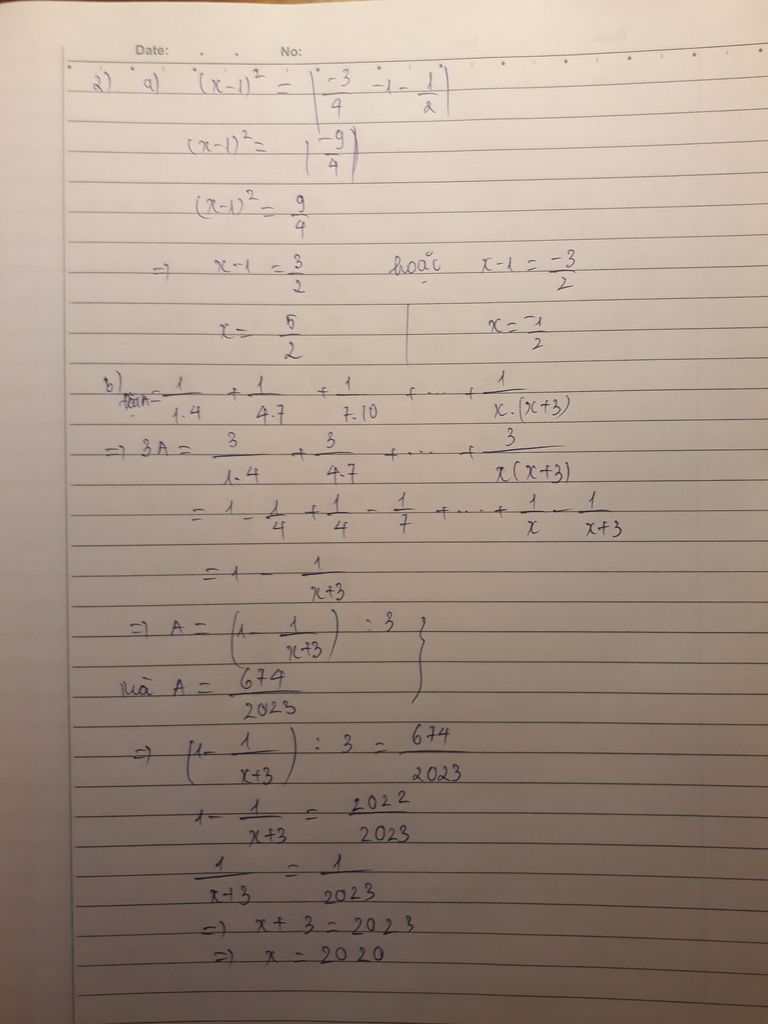 Date: . . No:
2) a) (x-1)² = |-3/4 -1 - 1/2|
(x-1)² = |-9/4|
(x-1)² = 9/4
=> x-1 = 3/2 hoặc x-1 = -3/2
x = 5/2 | x = -1/2
b) A = 1/1.4 + 1/4.7 + 1/7.10 + ... + 1/x.(x+3)
=> 3A = 3/1.4 + 3/4.7 + ... + 3/x(x+3)
= 1 - 1/4 + 1/4 - 1/7 + ... + 1/x - 1/x+3
= 1 - 1/x+3
=> A = (1 - 1/x+3) : 3 }
mà A = 674/2023
=> (1 - 1/x+3) : 3 = 674/2023
1 - 1/x+3 = 2022/2023
1/x+3 = 1/2023
=> x + 3 = 2023
=> x = 2020